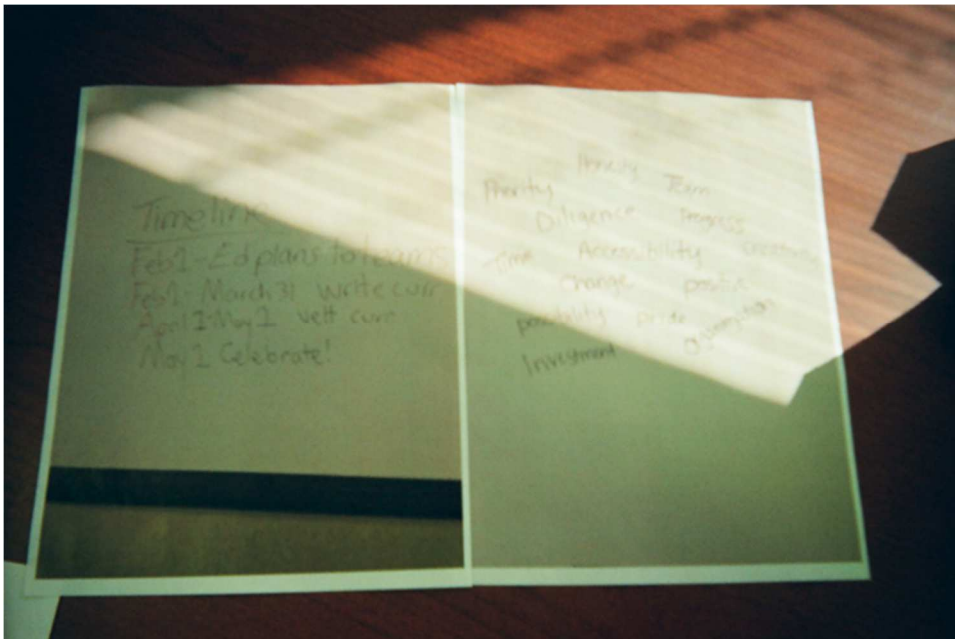 Timeline
Feb 1 - Ed plans to teams
Feb 1 - March 31 write curr
April 1-May 1 vett curr
May 1 Celebrate!
Honesty
Priority Team
Diligence Progress
Time Accessibility
Change positive
possibility pride
Investment Organization